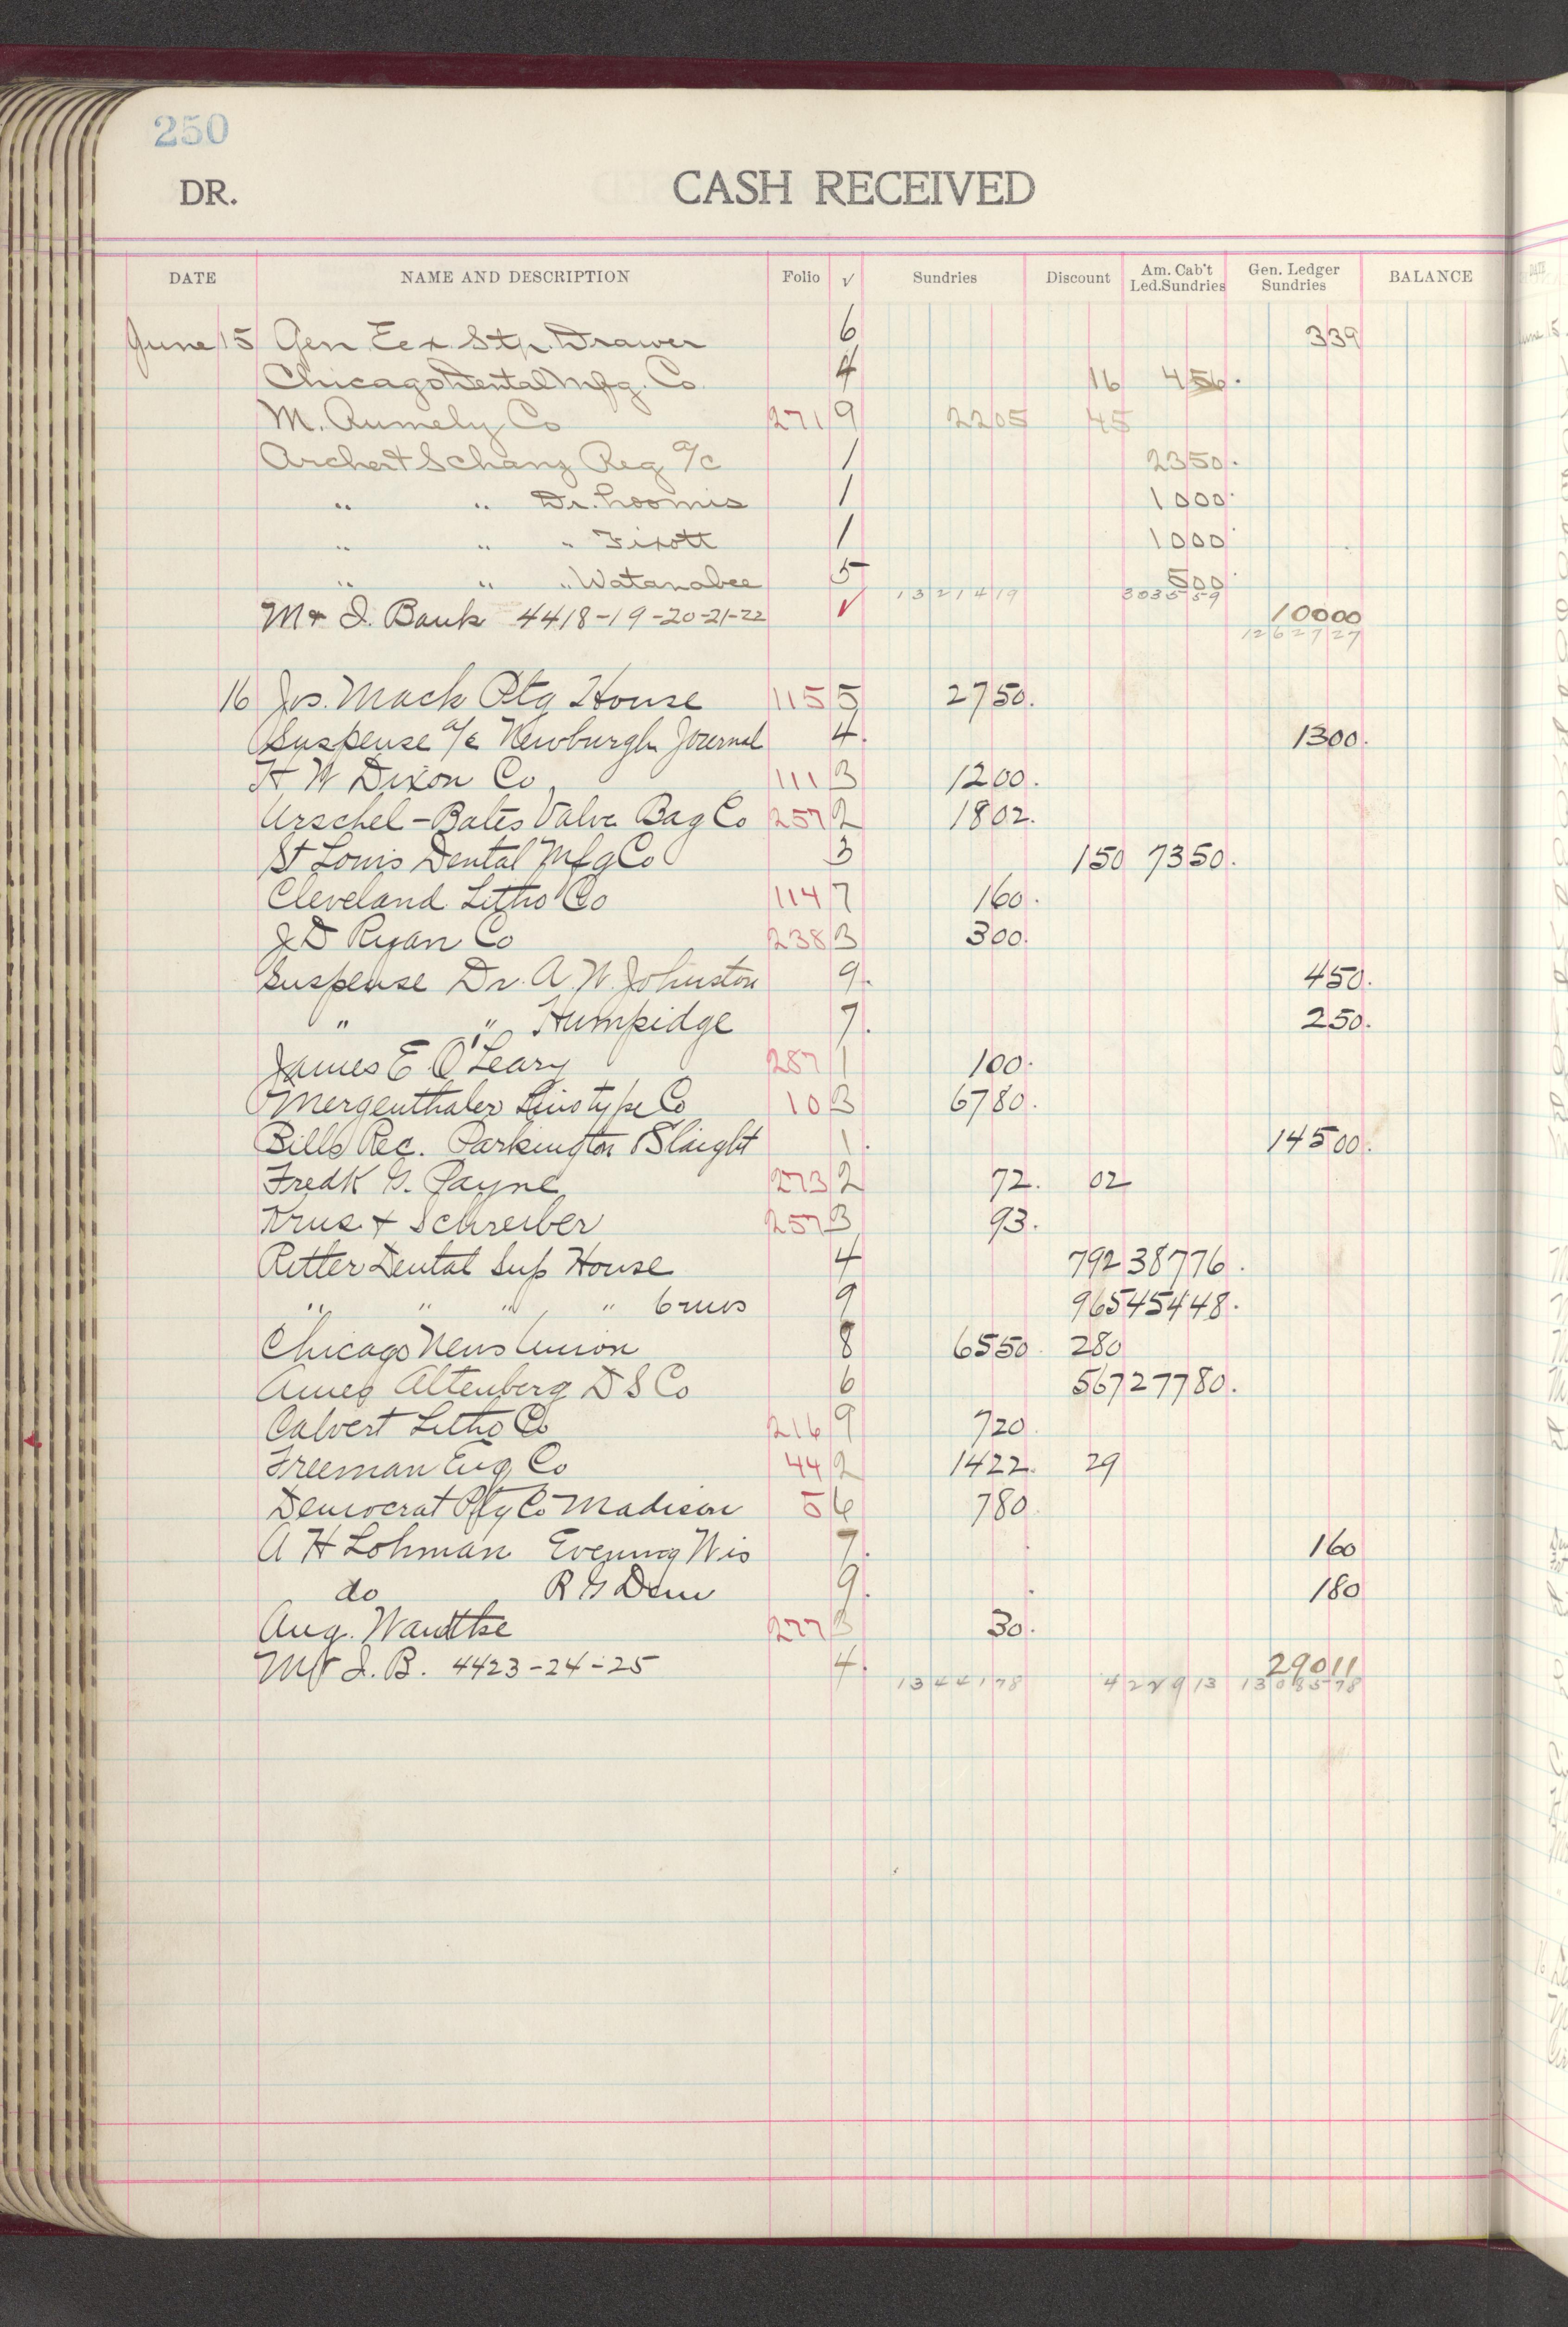 250
DR. CASH RECEIVED
DATE NAME AND DESCRIPTION Folio √ Sundries Discount Am. Cab't Led.Sundries Gen. Ledger Sundries BALANCE
June 15 Gen. Stp. Drawer 6 339
Chicago Dental Mfg. Co. 4 16 456.
M. Rumely Co 271 9 2205 45
Archer & Schanz Reg a/c 1 2350.
" " Dr. Loomis 1 1000.
" " " Fixott 1 1000
" " " Watanabee 5 500
1321419 303559
M & I. Bank 4418-19-20-21-22 √ 10000
1262727
16 Jos. Mack Ptg House 115 5 2750.
Suspense a/c Newburgh Journal 4. 1300.
H W Dixon Co 111 3 1200.
Urschel-Bates Valve Bag Co 257 2 1802.
St Louis Dental Mfg Co 3 150 7350.
Cleveland Litho Co 114 7 160.
J D Ryan Co 238 3 300.
Suspense Dr. A. W. Johnston 9. 450.
" " Humpidge 7. 250.
James E. O'Leary 287 1 100.
Mergenthaler Linotype Co 10 3 6780.
Bills Rec. Parkington & Slaight 1. 14500.
Fredk G. Payne 273 2 72. 02
Krus & Schreiber 257 3 93.
Ritter Dental Sup House 4 792 38776.
" " " " 6 mos 9 965 45448.
Chicago News Union 8 6550. 280
Altenberg D S Co 6 567 27780.
Calvert Litho Co 216 9 720.
Freeman Eng Co 44 2 1422. 29
Democrat Ptg Co Madison 5 6 780.
A H Lohman Evening Wis 7. 160
do R G Dun 9. 180
Aug. Wandtke 277 3 30.
M & I. B. 4423-24-25 4. 29011
1344178 428913 1308578